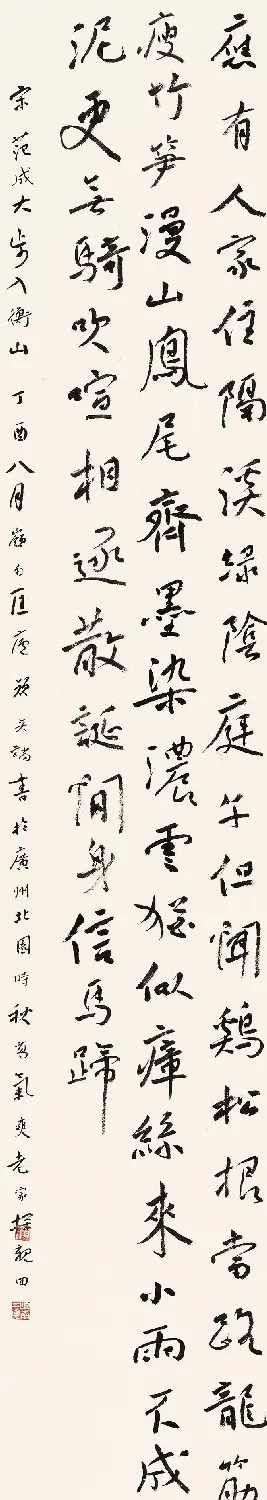 應有人家住隔溪綠陰庭午但聞鷄松根當路龍筋
瘦竹笋漫山鳳尾齊墨染濃雲猶似瘴絲來小雨不成
泥更無騎吹喧相逐散誕閒身信馬蹄
宋范成大步入衡山丁酉八月嶺南书於廣州北園時秋高氣爽老家探親回